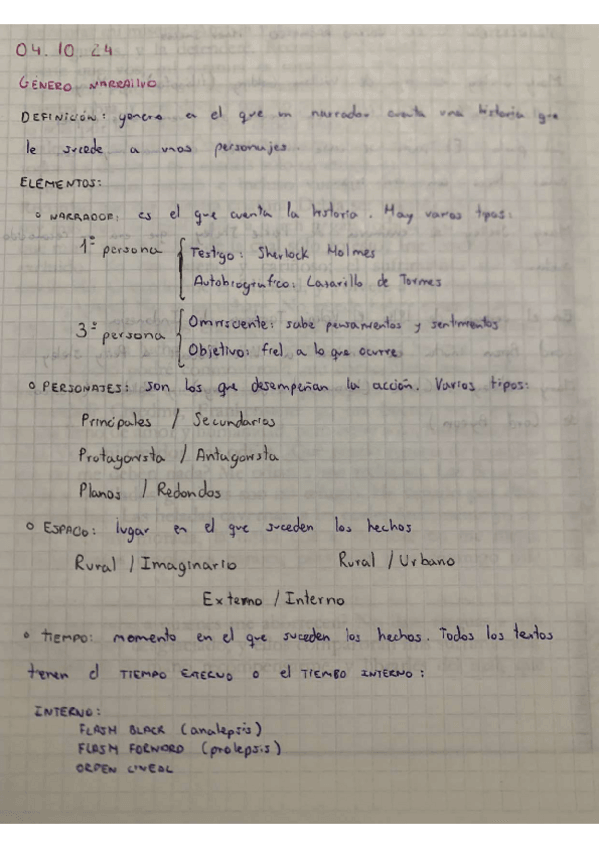 04.10.24
GÉNERO NARRATIVO
DEFINICIÓN: género en el que un narrador cuenta una historia que
le sucede a unos personajes.
ELEMENTOS:
○ NARRADOR: es el que cuenta la historia. Hay varios tipos:
1ª persona { Testigo: Sherlock Holmes
Autobiográfico: Lazarillo de Tormes
3ª persona { Omnisciente: sabe pensamientos y sentimientos
Objetivo: fiel a lo que ocurre
○ PERSONAJES: son los que desempeñan la acción. Varios tipos:
Principales / Secundarios
Protagonista / Antagonista
Planos / Redondos
○ ESPACIO: lugar en el que suceden los hechos
Rural / Imaginario Rural / Urbano
Externo / Interno
○ TIEMPO: momento en el que suceden los hechos. Todos los textos
tienen el TIEMPO EXTERNO o el TIEMBO INTERNO:
INTERNO:
FLASH BLACK (analepsis)
FLASH FORWORD (prolepsis)
ORDEN LINEAL